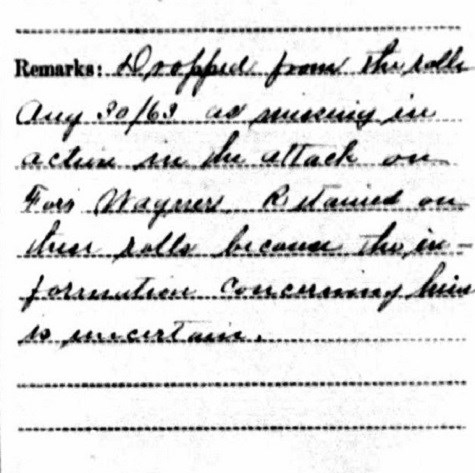 Remarks: Dropped from the rolls
Aug 30/63 as missing in
action in the attack on
Fort Wagner. Retained on
these rolls because the in-
formation concerning him
is uncertain.